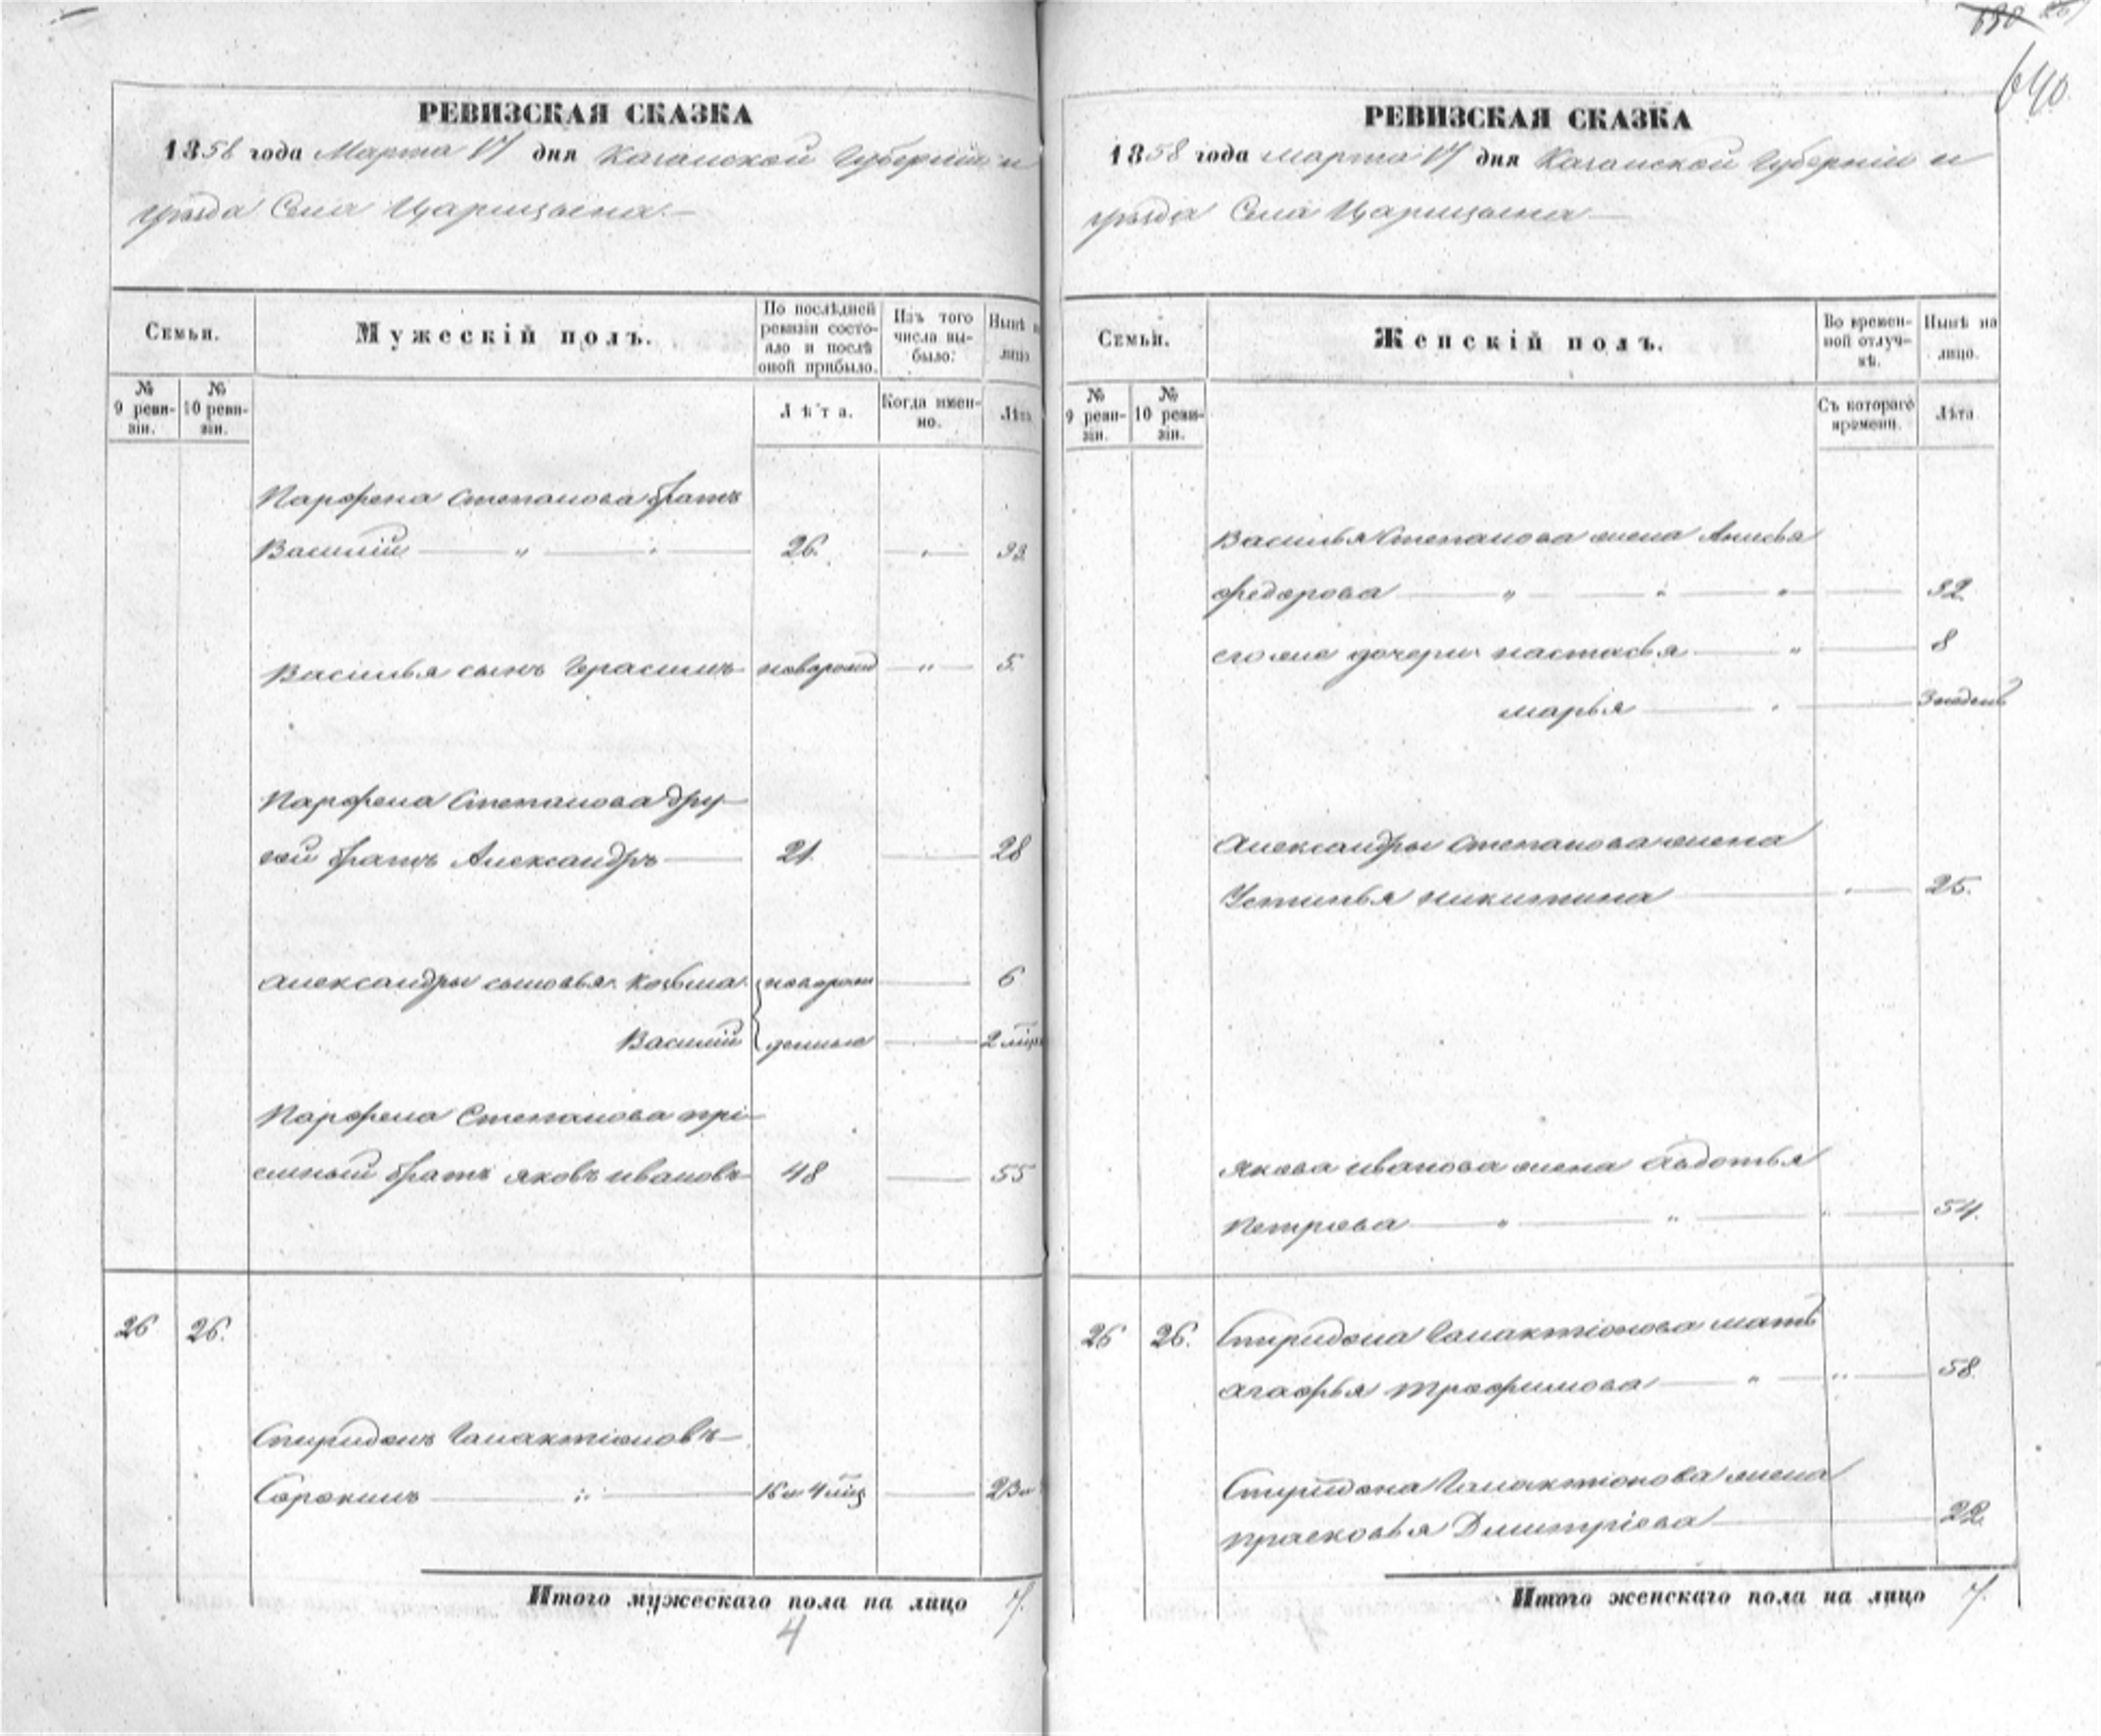 640
РЕВИЗСКАЯ СКАЗКА
1858 года Марта 17 дня Казанской Губерніи и
уѣзда Села Царицына.
Семьи.
Мужескій полъ.
По послѣдней
ревизіи состо-
яло и послѣ
оной прибыло.
Изъ того
числа вы-
было:
Нынѣ на
лицо
№
9 реви-
зіи.
№
10 реви-
зіи.
Лѣта.
Когда имен-
но.
Лѣта
Парфена Степанова братъ
Василій 26. 33
Василья сынъ Герасимъ новорожд 5.
Парфена Степанова дру-
гой братъ Александръ 21. 28
Александры сыновья Козьма новорож 6
Василій денные 2 мѣс
Парфена Степанова прі-
емный братъ Яковъ Ивановъ 48 55
26 26.
Спиридонъ Галактіоновъ
Сорокинъ 16 и 4 мѣс 23 и
Итого мужескаго пола на лицо 7.
4
РЕВИЗСКАЯ СКАЗКА
1858 года Марта 17 дня Казанской Губерніи и
уѣзда Села Царицына
Семьи.
Женскій полъ.
Во времен-
ной отлуч-
кѣ.
Нынѣ на
лицо.
№
9 реви-
зіи.
№
10 реви-
зіи.
Съ котораго
времени.
Лѣта.
Василья Степанова жена Анисья
Федорова 32.
его же дочери Настасья 8
Марья 3 недѣль
Александры Степанова жена
Устинья Никитина 25.
Якова Иванова жена Авдотья
Петрова 54.
26 26. Спиридона Галактіонова мать
Агафья Трофимова 58.
Спиридона Галактіонова жена
Прасковья Дмитріева 22.
Итого женскаго пола на лицо 7.